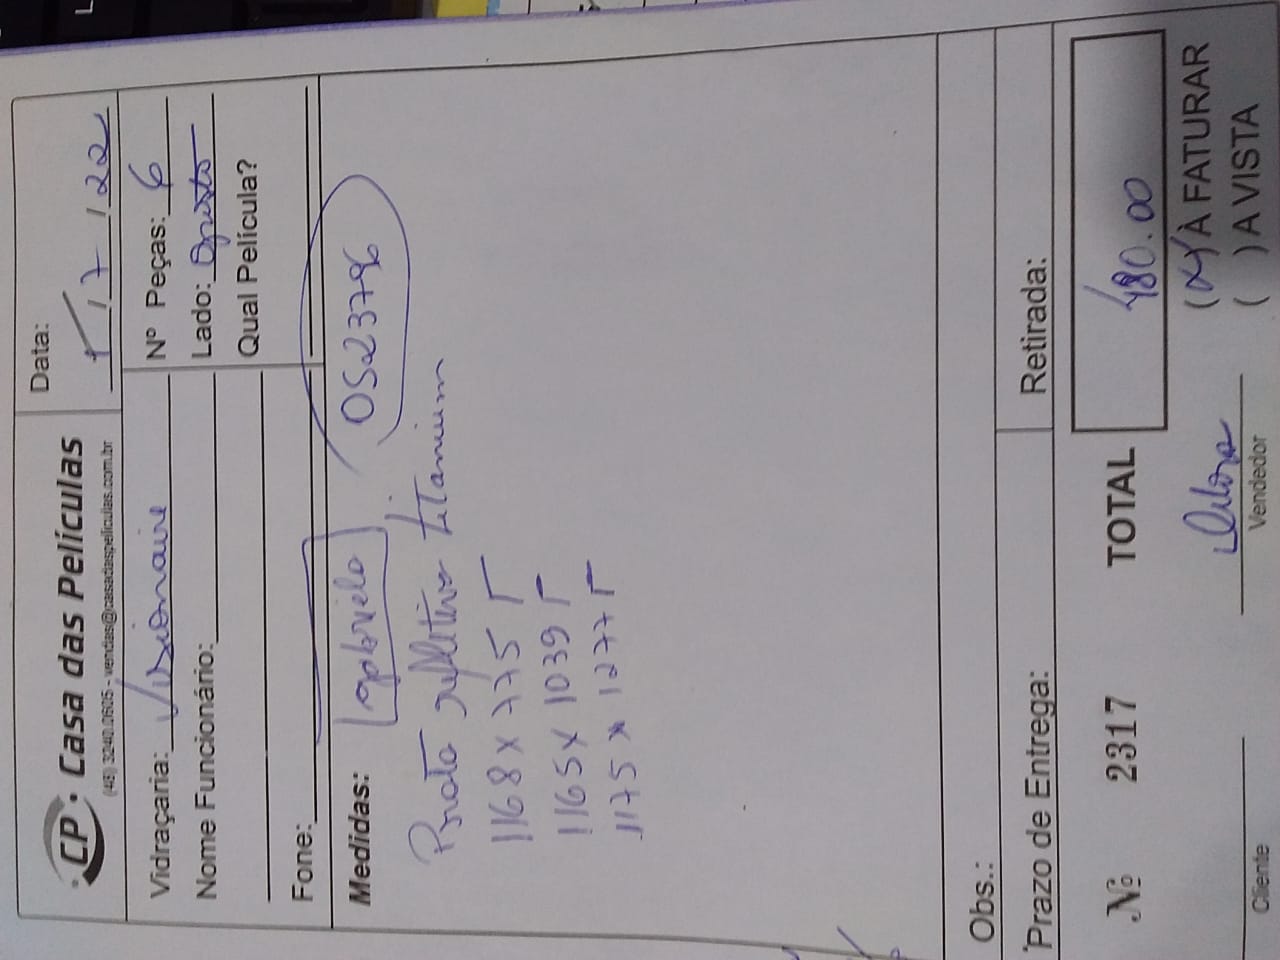 CP. Casa das Películas
(48) 3240.0605 - vendas@casadaspeliculas.com.br
Data:
1/7/22
Vidraçaria: Visionaire
Nº Peças: 6
Nome Funcionário:
Lado: oposto
Qual Película?
Fone:
Medidas: Gabriela OS23796
Prata refletivo titanium
1168 x 775
1165 x 1039
1175 x 1277
Obs.:
Prazo de Entrega:
Retirada:
Nº 2317 TOTAL 480.00
(x) À FATURAR
( ) A VISTA
Cliente
Vendedor